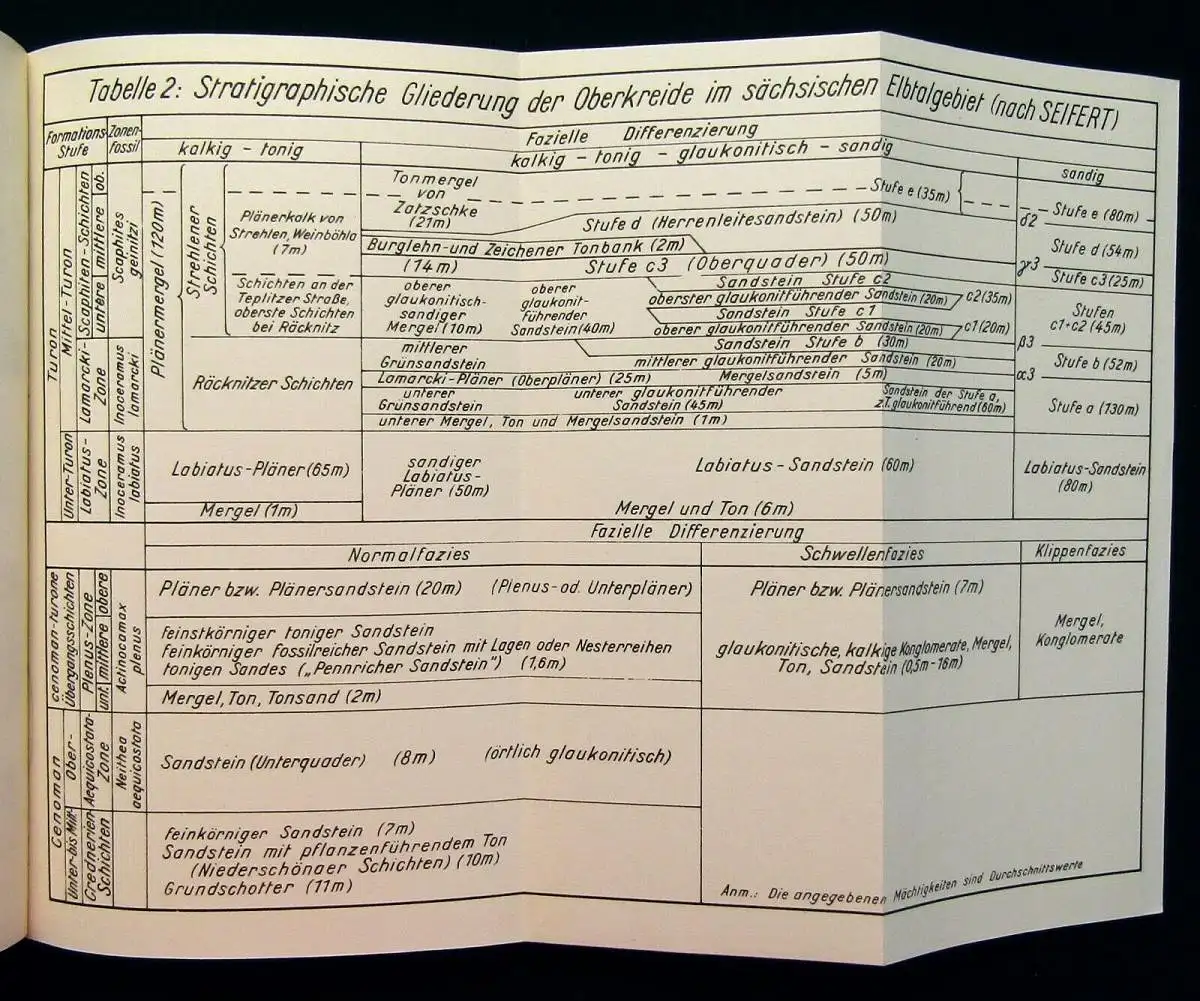 Tabelle 2: Stratigraphische Gliederung der Oberkreide im sächsischen Elbtalgebiet (nach SEIFERT)
Formations-
Stufe
Zonen-
fossil
Fazielle Differenzierung
kalkig - tonig
kalkig - tonig - glaukonitisch - sandig
sandig
Turon
Mittel-Turon
Scaphiten-Schichten
untere mittlere ob.
Scaphites
geinitzi
Lamarcki-
Zone
Inoceramus
lamarcki
Unter-Turon
Labiatus-
Zone
Inoceramus
labiatus
Plänermergel (120m)
Strehlener
Schichten
Plänerkalk von
Strehlen, Weinböhla
(7m)
Schichten an der
Teplitzer Straße,
oberste Schichten
bei Räcknitz
Räcknitzer Schichten
Tonmergel
von
Zatzschke
(21m)
Stufe e (35m)
Stufe d (Herrenleitesandstein) (50m)
Burglehn- und Zeichener Tonbank (2m)
(14m)
Stufe c3 (Oberquader) (50m)
oberer
glaukonitisch-
sandiger
Mergel (10m)
oberer
glaukonit-
führender
Sandstein (40m)
Sandstein Stufe c2
oberster glaukonitführender Sandstein (20m)
c2 (35m)
Sandstein Stufe c1
oberer glaukonitführender Sandstein (20m)
c1 (20m)
mittlerer
Grünsandstein
Sandstein Stufe b (30m)
mittlerer glaukonitführender Sandstein (20m)
Lamarcki-Pläner (Oberpläner) (25m)
Mergelsandstein (5m)
unterer
Grünsandstein
unterer glaukonitführender
Sandstein (45m)
Sandstein der Stufe a,
z.T. glaukonitführend (60m)
unterer Mergel, Ton und Mergelsandstein (1m)
δ2
γ3
β3
α3
Stufe e (80m)
Stufe d (54m)
Stufe c3 (25m)
Stufen
c1+c2 (45m)
Stufe b (52m)
Stufe a (130m)
Labiatus-Pläner (65m)
Mergel (1m)
sandiger
Labiatus-
Pläner (50m)
Labiatus-Sandstein (60m)
Mergel und Ton (6m)
Labiatus-Sandstein
(80m)
Fazielle Differenzierung
Normalfazies
Schwellenfazies
Klippenfazies
cenoman-turone
Übergangsschichten
Plenus-Zone
unt. mittlere obere
Actinocamax
plenus
Pläner bzw. Plänersandstein (20m) (Plenus- od. Unterpläner)
Pläner bzw. Plänersandstein (7m)
feinstkörniger toniger Sandstein
feinkörniger fossilreicher Sandstein mit Lagen oder Nesterreihen
tonigen Sandes („Pennricher Sandstein") (1,6m)
glaukonitische, kalkige Konglomerate, Mergel,
Ton, Sandstein (0,5m-16m)
Mergel,
Konglomerate
Mergel, Ton, Tonsand (2m)
Cenoman
Ober-
Aequicostata-
Zone
Neithea
aequicostata
Sandstein (Unterquader) (8m) (örtlich glaukonitisch)
Unter- bis Mitt.-
Crednerien-
Schichten
feinkörniger Sandstein (7m)
Sandstein mit pflanzenführendem Ton
(Niederschönaer Schichten) (10m)
Grundschotter (11m)
Anm.: Die angegebenen Mächtigkeiten sind Durchschnittswerte